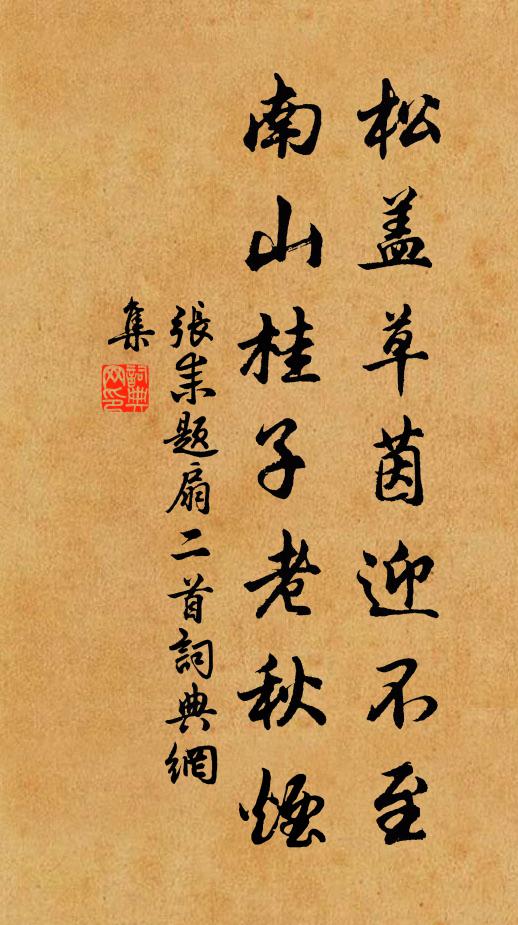 松盖草茵迎不至
南山桂子老秋煙
張耒題扇二首詞典網
集
詞典網印